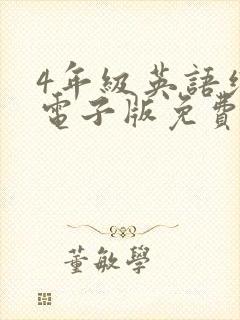 4年級英語
電子版免費
董敏學